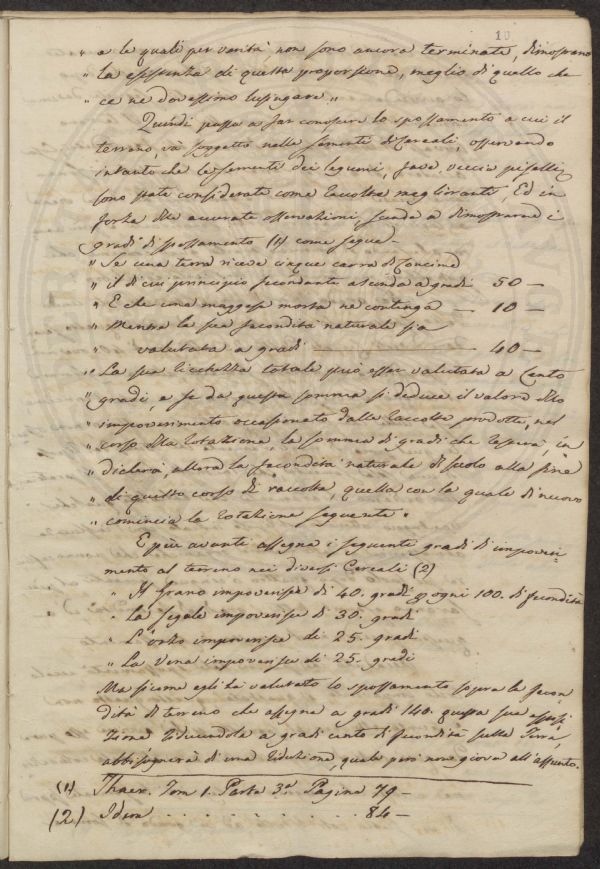 10
" a le quali per verità non sono ancora terminate, dimostrano
" la esistenza di questa proporzione, meglio di quello che
" ce ne dovessimo lusingare "
Quindi passa a far conoscere lo spossamento a cui il
terreno, và soggetto nelle sementi di Cereali, osservando
intanto che le sementi dei legumi, fave, veccie piselli
sono state considerate come raccolte meglioranti, Ed in
forza delle accurate osservazioni, scende a dimostrarne i
gradi di spossamento (1) come segue -
" Se una terra riceve cinque carra di Concime
" il di cui principio fecondante ascenda a gradi 50 -
" E che una maggese morta ne contenga - 10 -
" Mentre la sua fecondità naturale sia
" valutata a gradi 40 -
" La sua ricchezza totale può esser valutata a Cento
" gradi, e se da questa somma si deduce il valore dello
" impoverimento occasionato dalle raccolte prodotte, nel
" corso della rotazione, la somma di gradi che resterà, in
" dicherà, allora la fecondità naturale di suolo alla fine
" di questo corso di raccolte, quella con la quale di nuovo
" comincia la rotazione seguente "
E più avanti assegna i seguenti gradi di impoveri-
mento al terreno nei diversi Cereali (2)
" Il Grano impoverisce di 40. gradi ogni 100. di fecondità
" La Segale impoverisce di 30. gradi
" L'orzo impoverisce di 25. gradi
" La Vena impoverisce di 25. gradi
Ma siccome egli ha valutato lo spossamento sopra la fecon
dità di terreno che assegna a gradi 140. questa sua esposi
zione riducendola a gradi cento di fecondità sulla Terra,
abbisognerà di una riduzione, quale però non giova all'assunto.
(1) Thaer. Tom 1. Parte 3a Pagine 79 -
(2) Idem . . . . . . . . . . 84 -